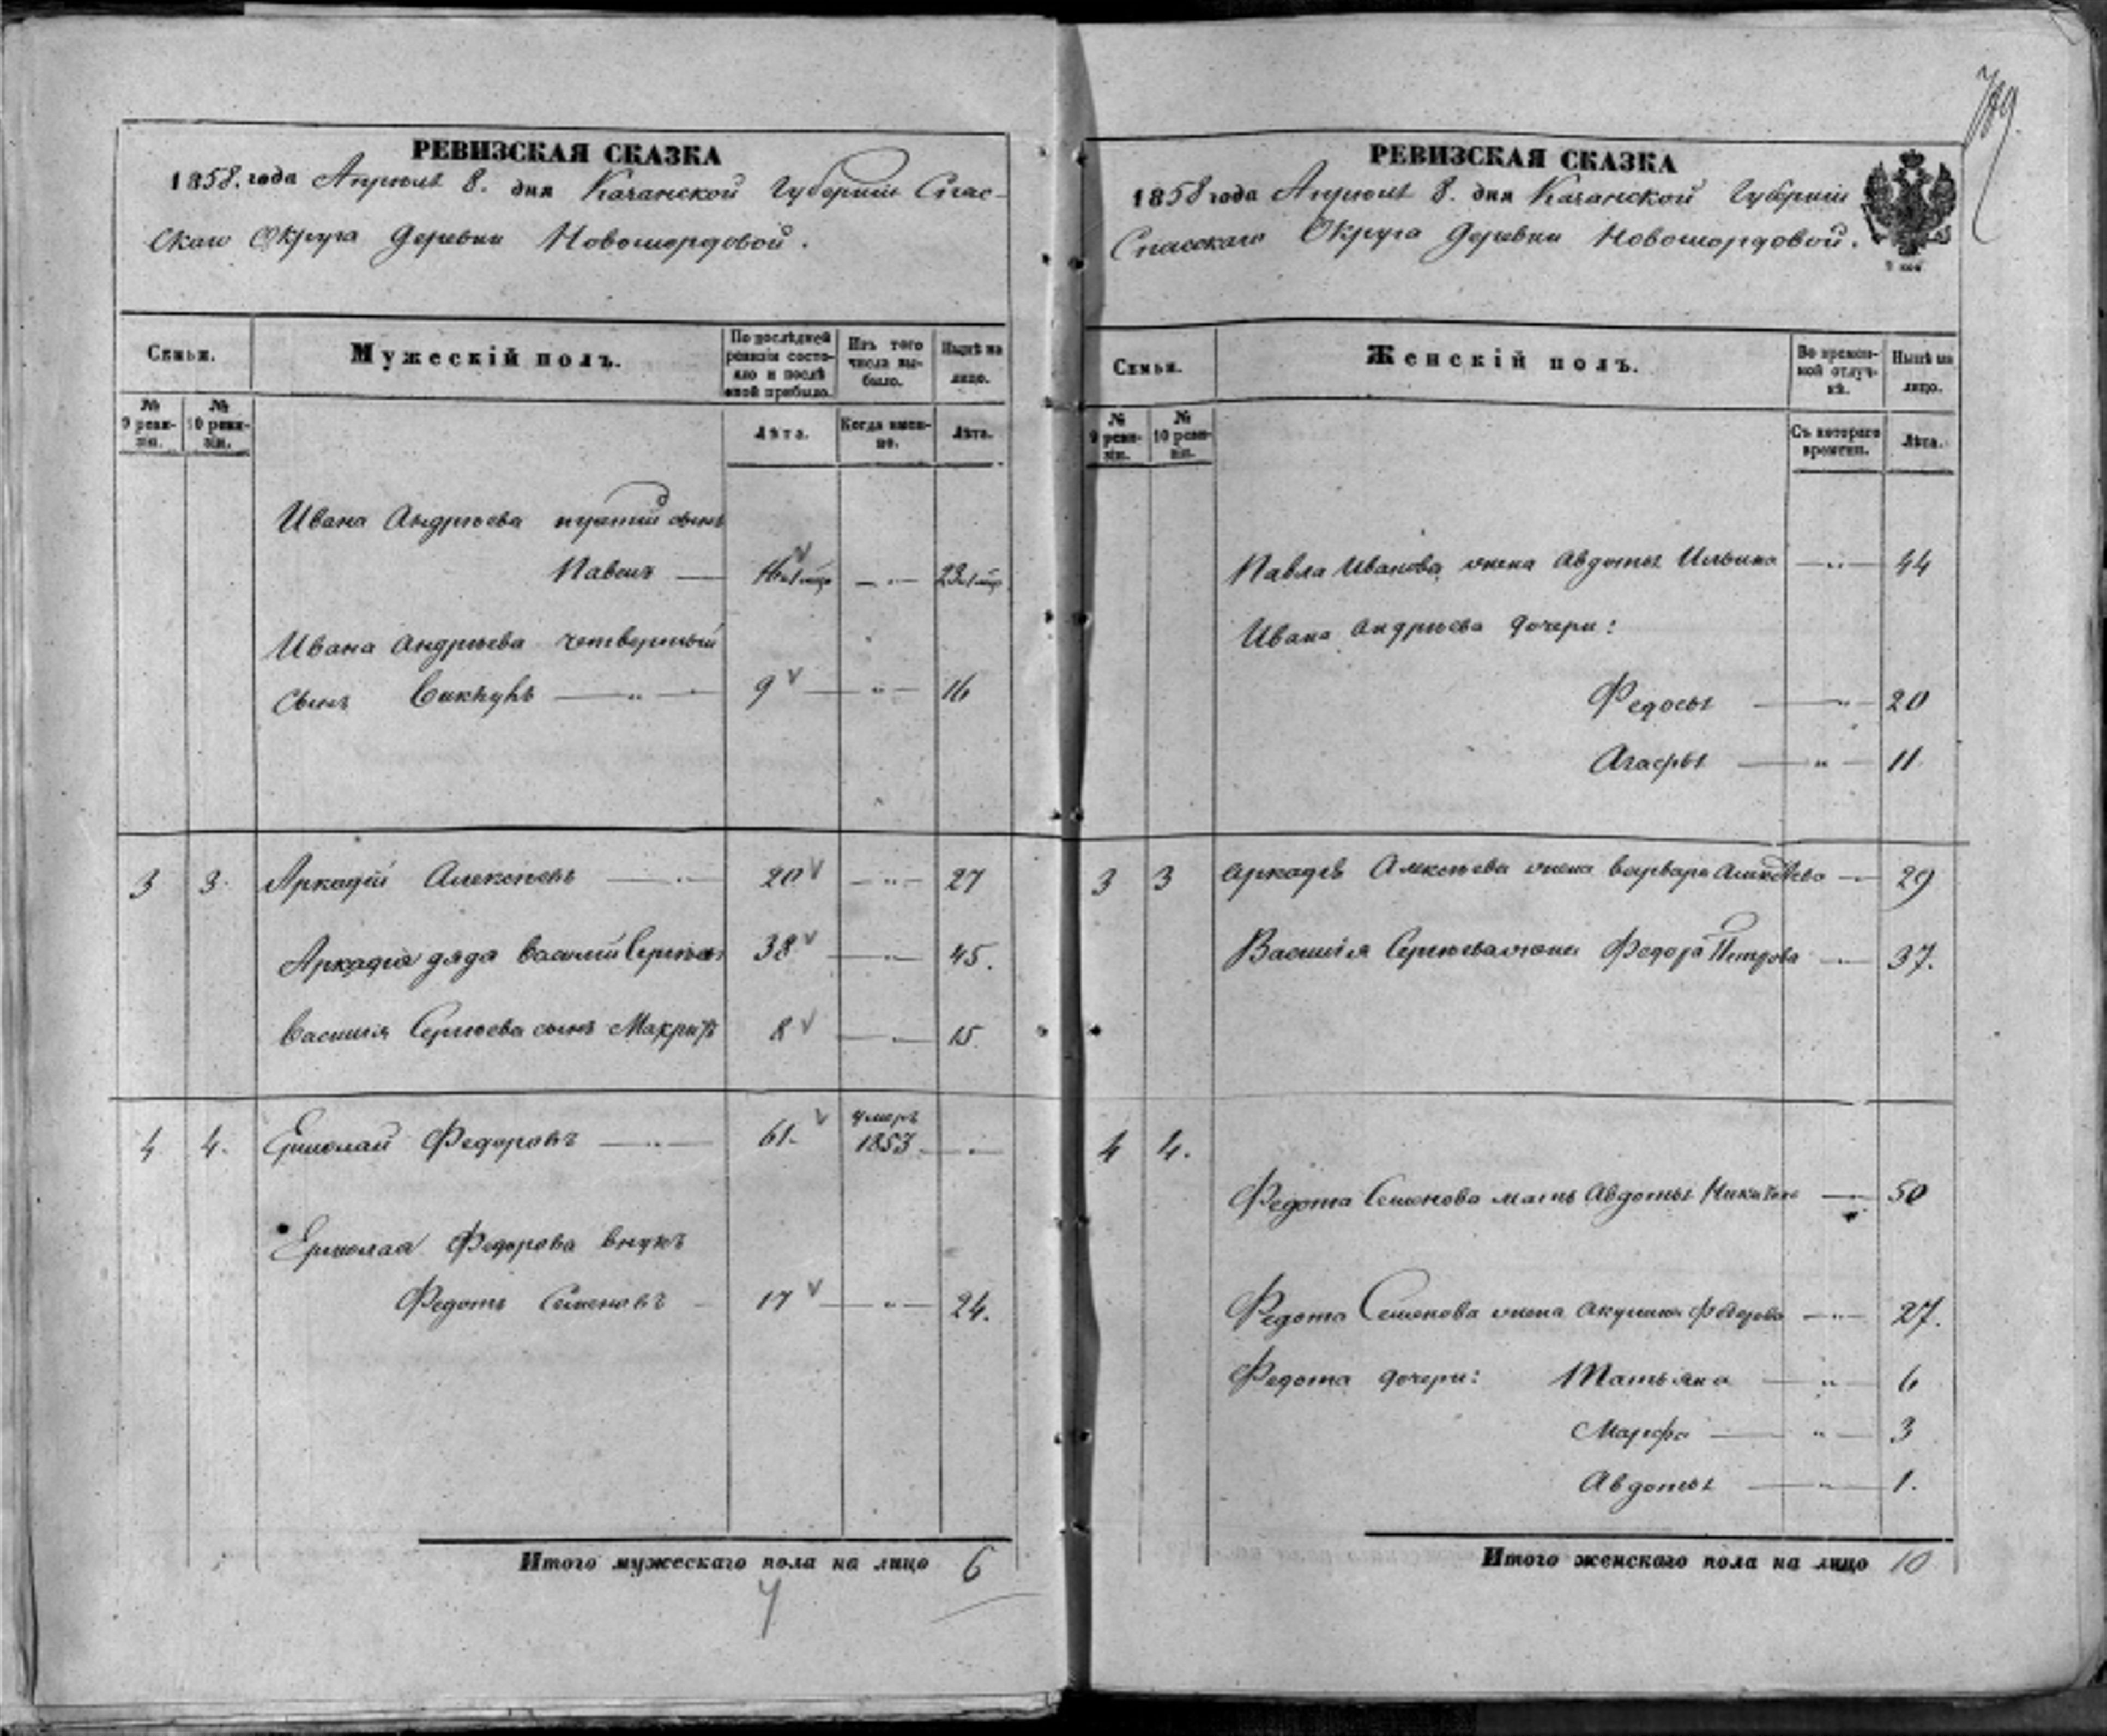 РЕВИЗСКАЯ СКАЗКА
1858. года Апреля 8. дня Казанской Губернии Спас-
скаго Округа Деревни Новомордовой.
Семьи.
Мужескій полъ.
По послѣдней ревизіи состояло и послѣ оной прибыло.
Изъ того числа выбыло.
Нынѣ на лицо.
№ 9 ревизіи.
№ 10 ревизіи.
Лѣта.
Когда именно.
Лѣта.
Ивана Андреева третій сынъ
Павелъ 23
Ивана Андреева четвертый
сынъ 9 16
3 3. Аркадій Алексѣевъ 20 27
Аркадія дядя Василій Сергѣевъ 38 45.
Василія Сергѣева сынъ 8 15.
4 4. Ермолай Федоровъ 61. умеръ 1853
Ермолая Федорова внукъ
Федотъ Семеновъ 17 24.
Итого мужескаго пола на лицо 6
РЕВИЗСКАЯ СКАЗКА
1858 года Апреля 8. дня Казанской Губерніи
Спасскаго Округа Деревни Новомордовой.
Семьи.
Женскій полъ.
Во временной отлучкѣ.
Нынѣ на лицо.
№ 9 ревизіи.
№ 10 ревизіи.
Съ котораго времени.
Лѣта.
Павла Иванова жена Авдотья Ильина 44
Ивана Андреева дочери:
Федосья 20
Агафья 11
3 3 Аркадія Алексѣева жена Варвара 29
Василія Сергѣева жена Федора Петрова 37.
4 4.
Федота Семенова мать Авдотья Никитина 50
Федота Семенова жена Акулина Федорова 27.
Федота дочери: Татьяна 6
Марфа 3
Авдотья 1.
Итого женскаго пола на лицо 10